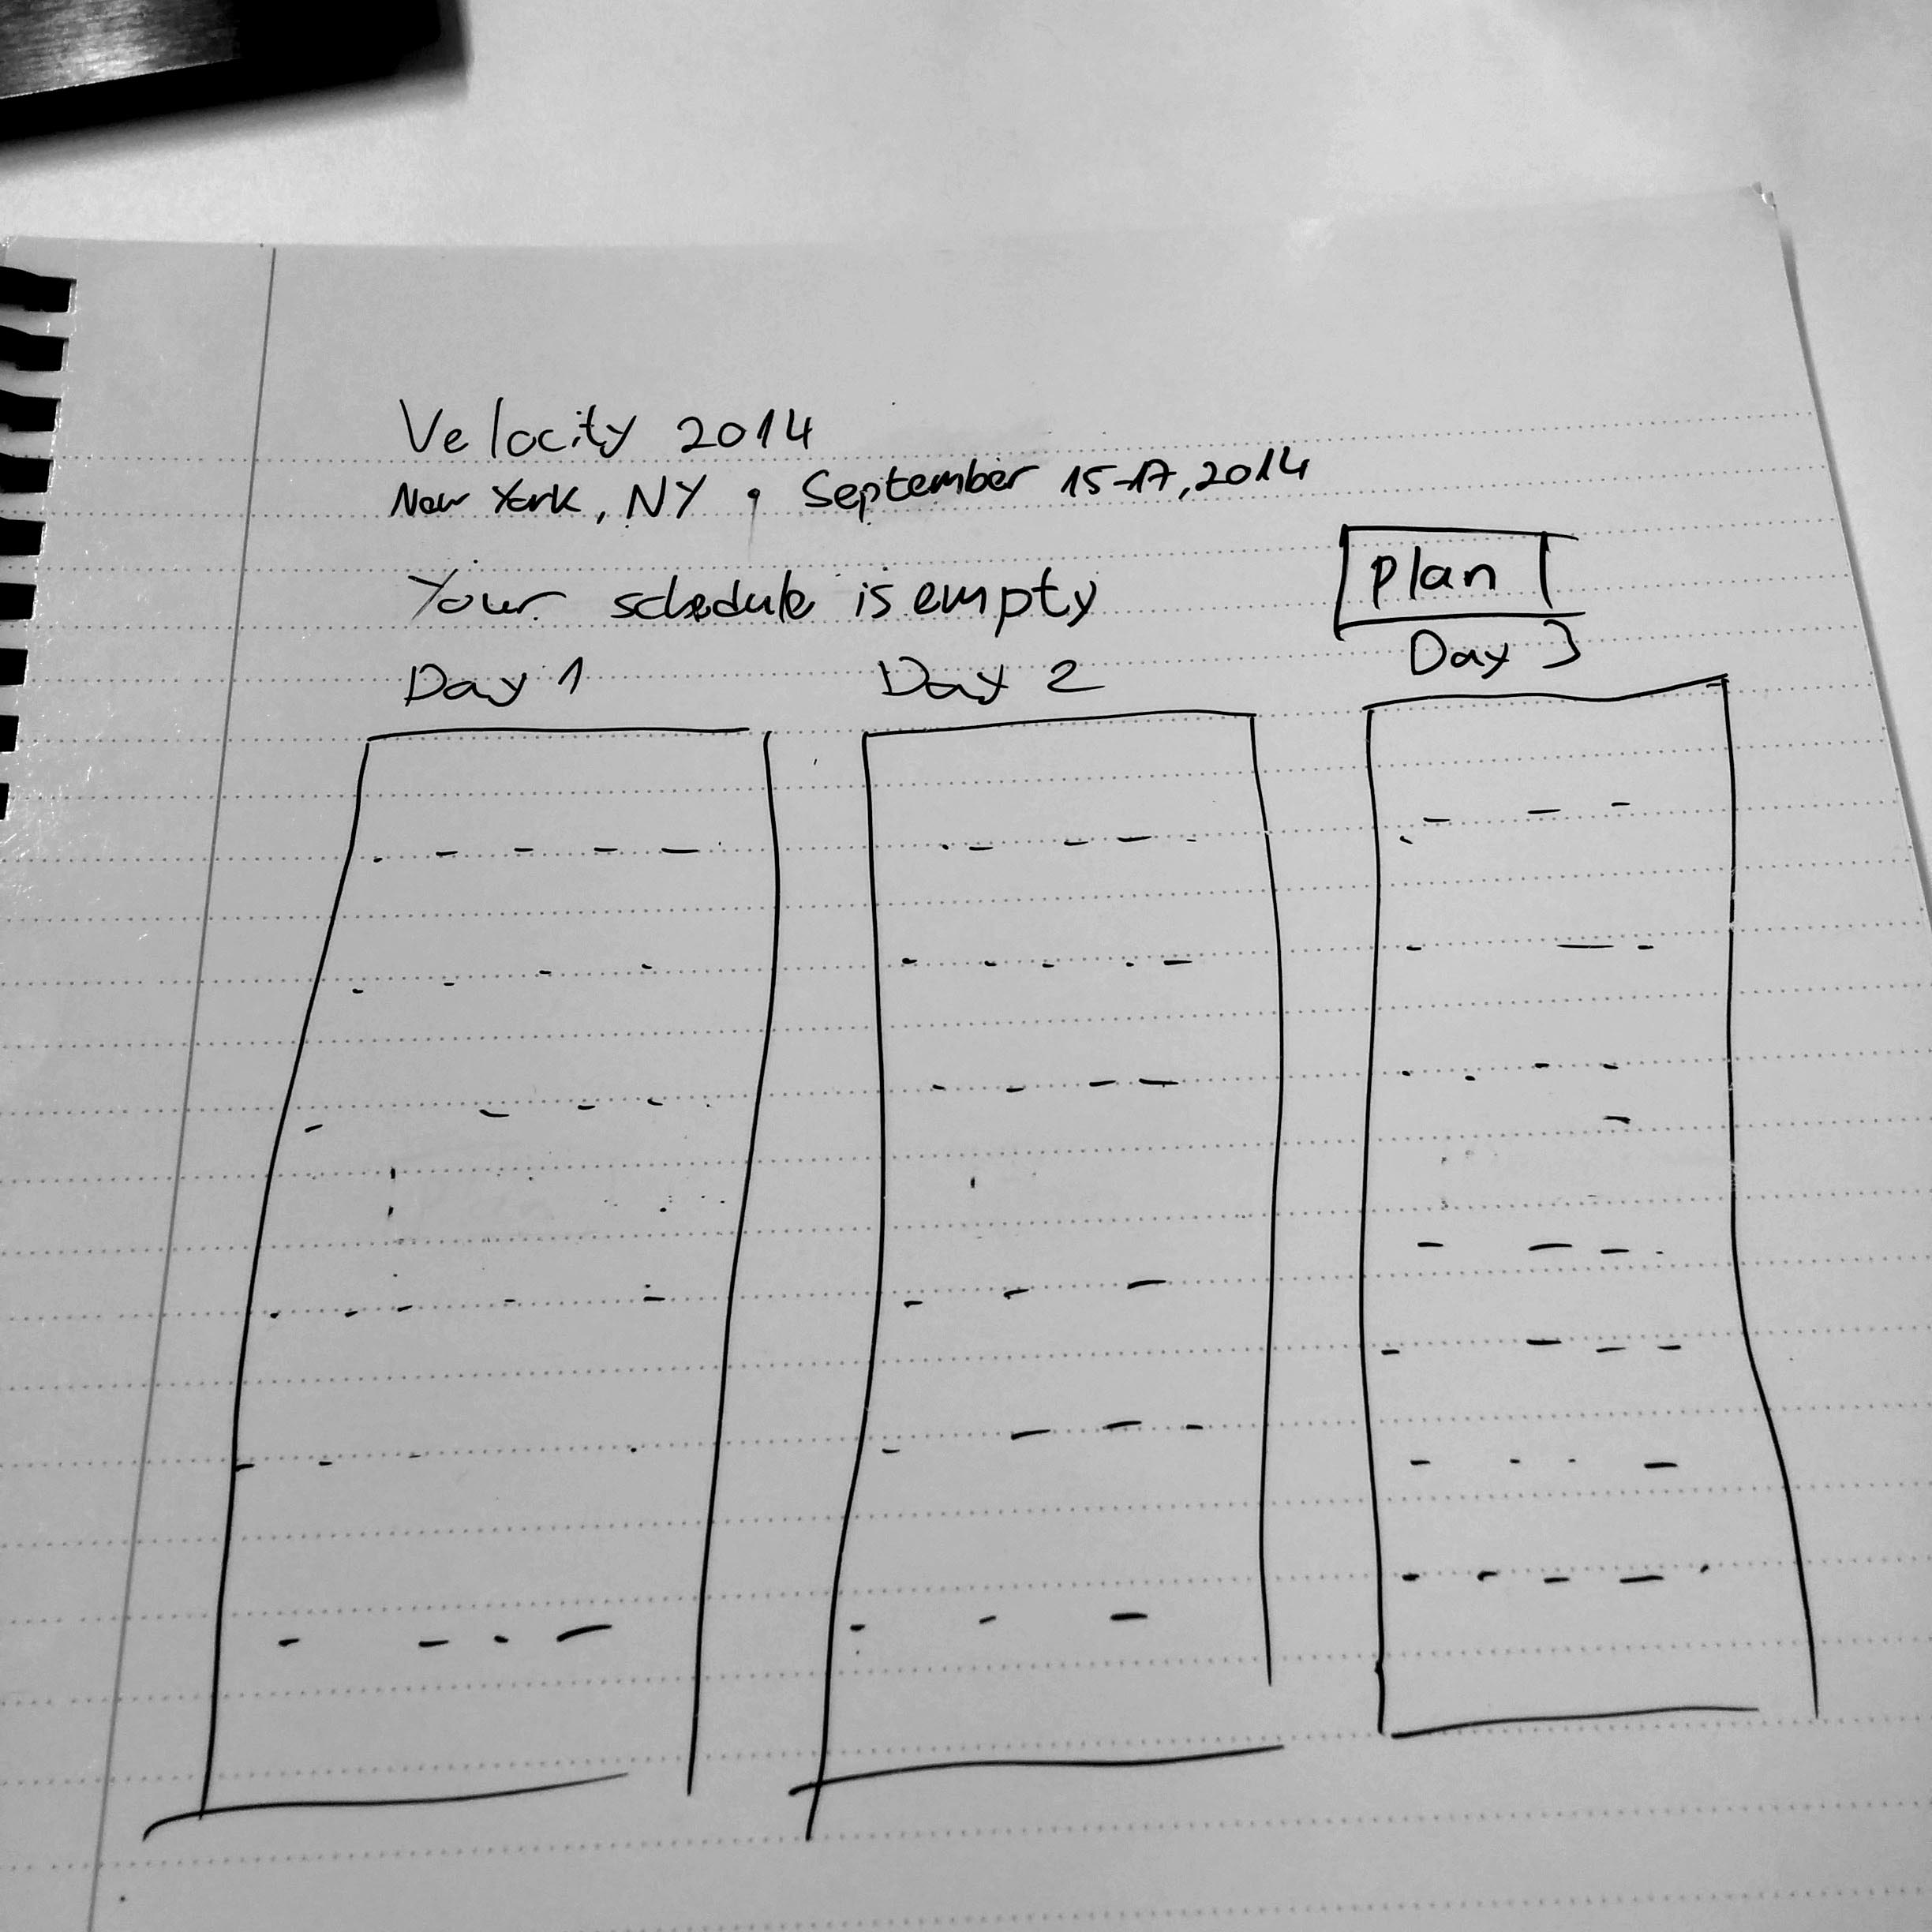 Velocity 2014
New York, NY • September 15-17, 2014
Your schedule is empty
plan
Day 1 Day 2 Day 3